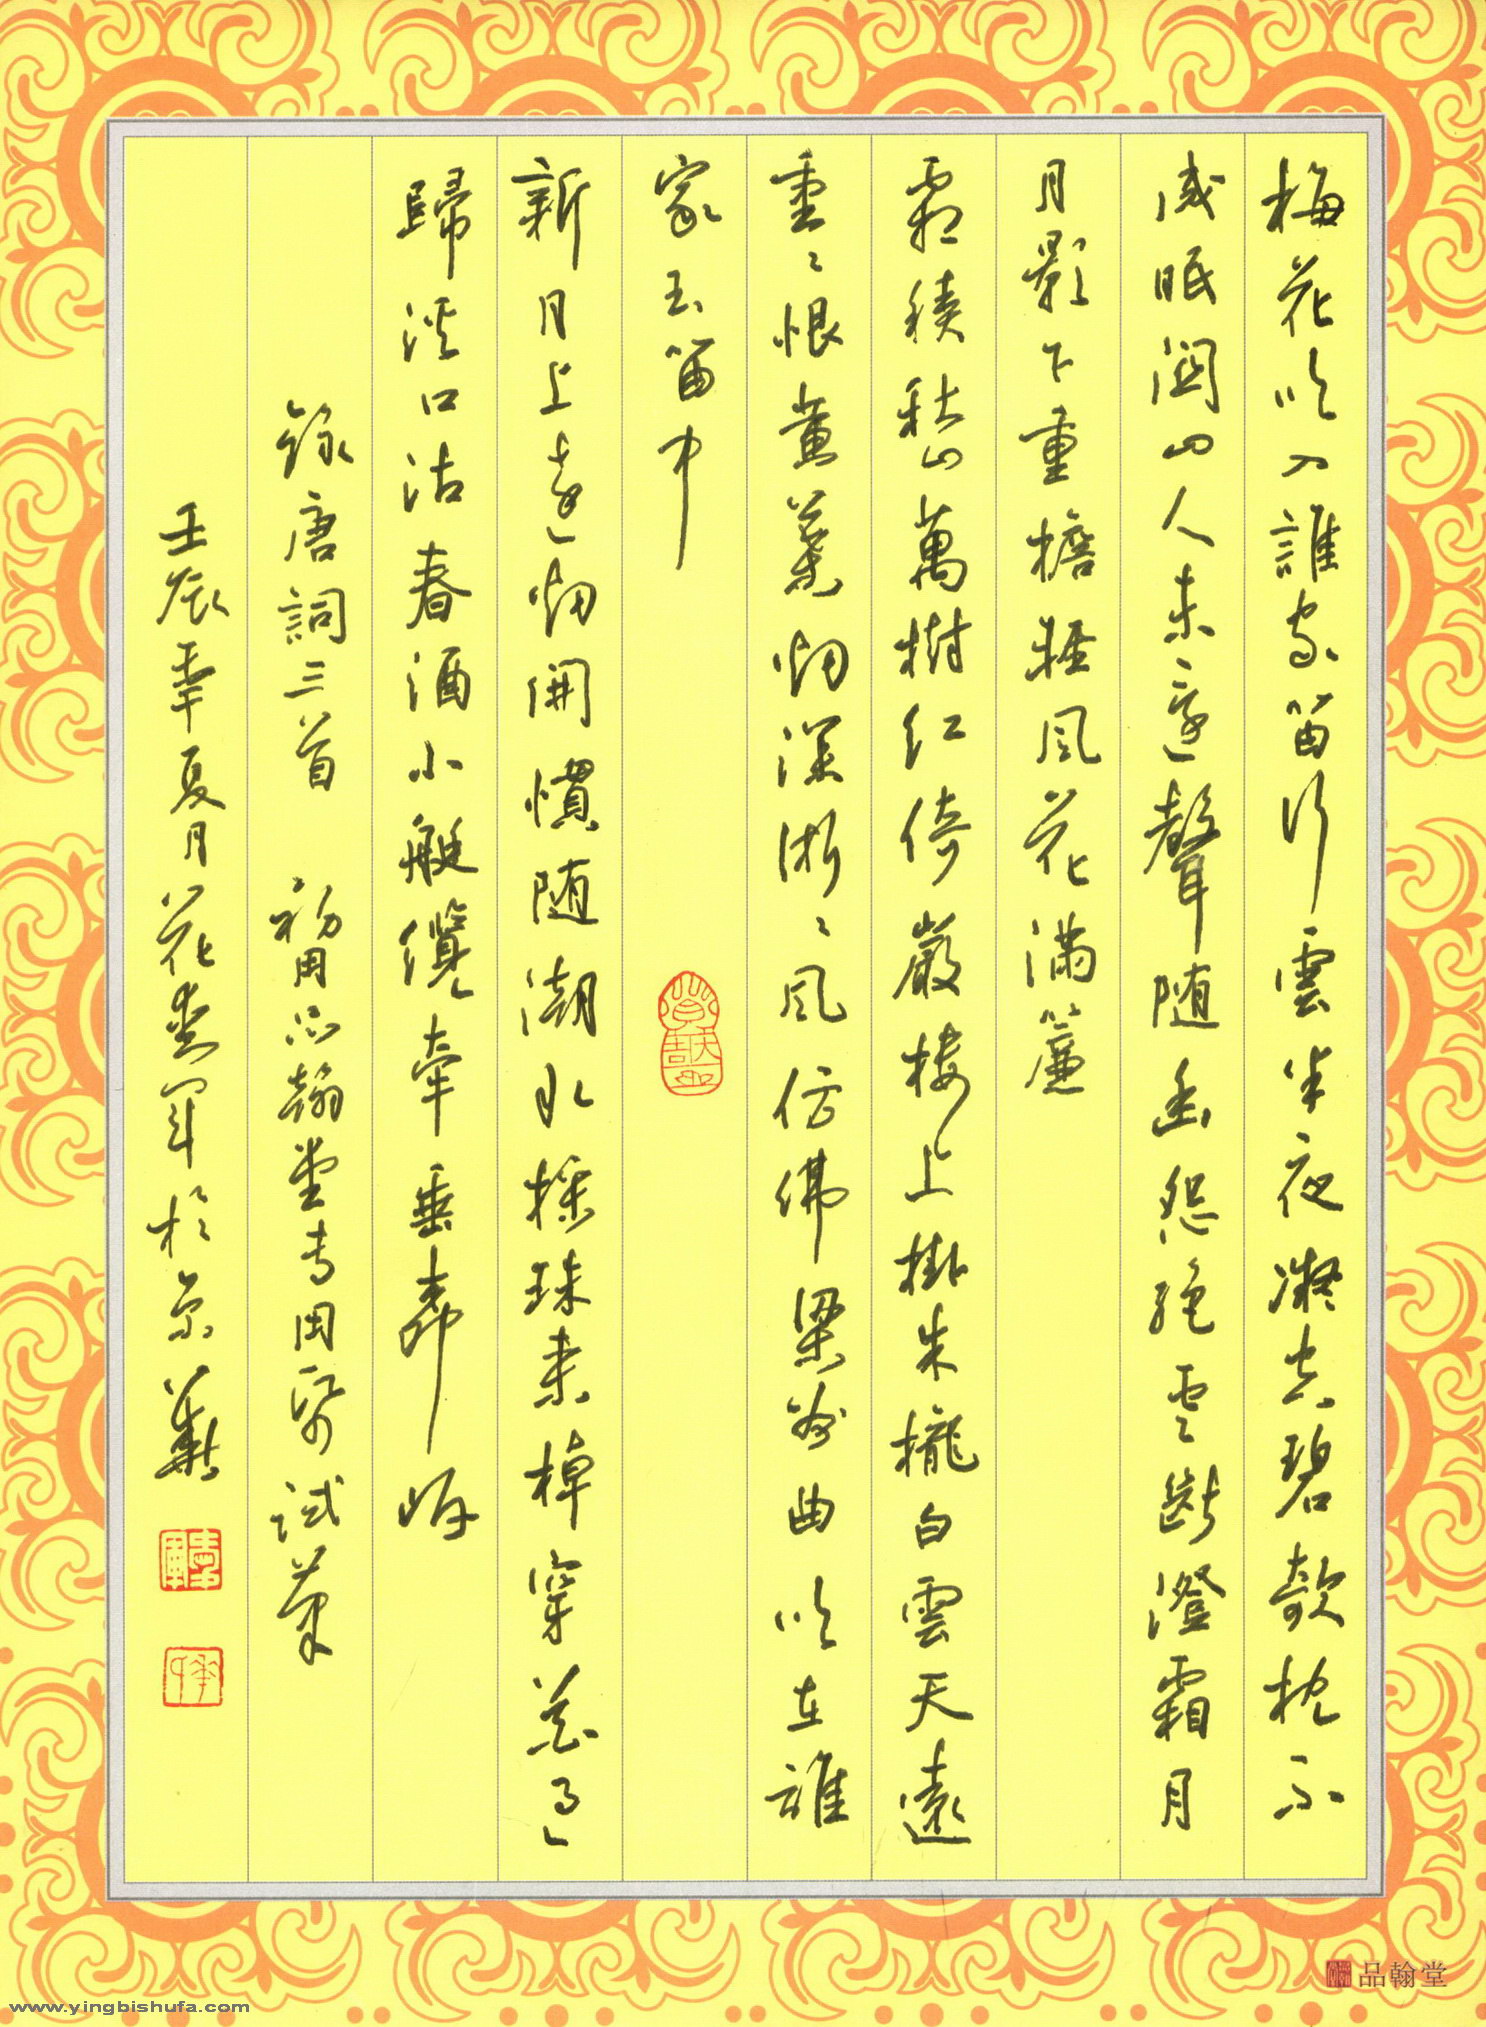 梅花吹入誰家笛行雲半夜凝空碧欹枕不
成眠關山人未還聲隨幽怨絶雲斷澄霜月
月影下重檐輕風花滿簾
霜積秋山萬樹紅倚巖樓上掛朱櫳白雲天遠
重々恨黄葉烟深淅々風仿佛梁州曲吹在誰
家玉笛中
新月上遠烟開慣随潮水採珠來棹穿花過
歸溪口沽春酒小艇纜牽垂岸
録唐詞三首 初用品翰堂专用紙试筆
壬辰年夏月花 軍於京華
品翰堂
www.yingbishufa.com